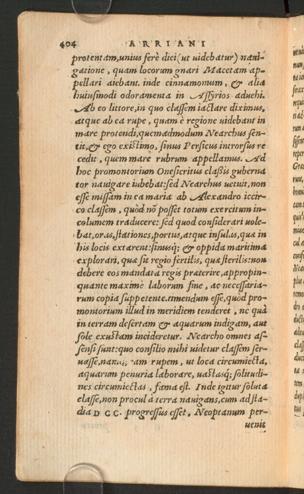 404 ARRIANI
protentam, unius ferè diei (ut uidebatur) naui-
gatione, quam locorum gnari Macetam ap-
pellari aiebant. inde cinnamomum, & alia
huiusmodi odoramenta in Assyrios aduehi.
Ab eo littore, in quo classem iactare diximus,
atque ab ea rupe, quam è regione uidebant in
mare protendi, quemadmodum Nearchus sen-
tit, & ego existimo, sinus Persicus introrsus re
cedit, quem mare rubrum appellamus. Ad
hoc promontorium Onesicritus classis guberna
tor nauigare iubebat: sed Nearchus uetuit, non
esse missam in ea maria ab Alexandro iccir-
co classem, quòd nō posset totum exercitum in-
columem traducere: sed quod considerari uole-
bat, oras, stationes, portus, atque insulas, quæ in
his locis extarent: sinusq; & oppida maritima
explorari, quæ sit regio fertilis, quæ sterilis: non
debere eos mandata regis præterire, appropin-
quante maximè laborum fine, ac necessaria-
rum copia suppetente. timendum esse, quòd pro
montorium illud in meridiem tenderet, ne quà
in terram desertam & aquarum indigam, aut
sole exustam incideretur. Nearcho omnes as-
sensi sunt: quo consilio mihi uidetur classem ser-
uasse, rupem, ut loca circumiecta,
aquarum penuria laborare, uastasq; solitudi-
nes circumiectas, fama est. Inde igitur soluta
classe, non procul à terra nauigans, cum ad sta-
dia DCC. progressus esset, Neoptanum per-
uenit